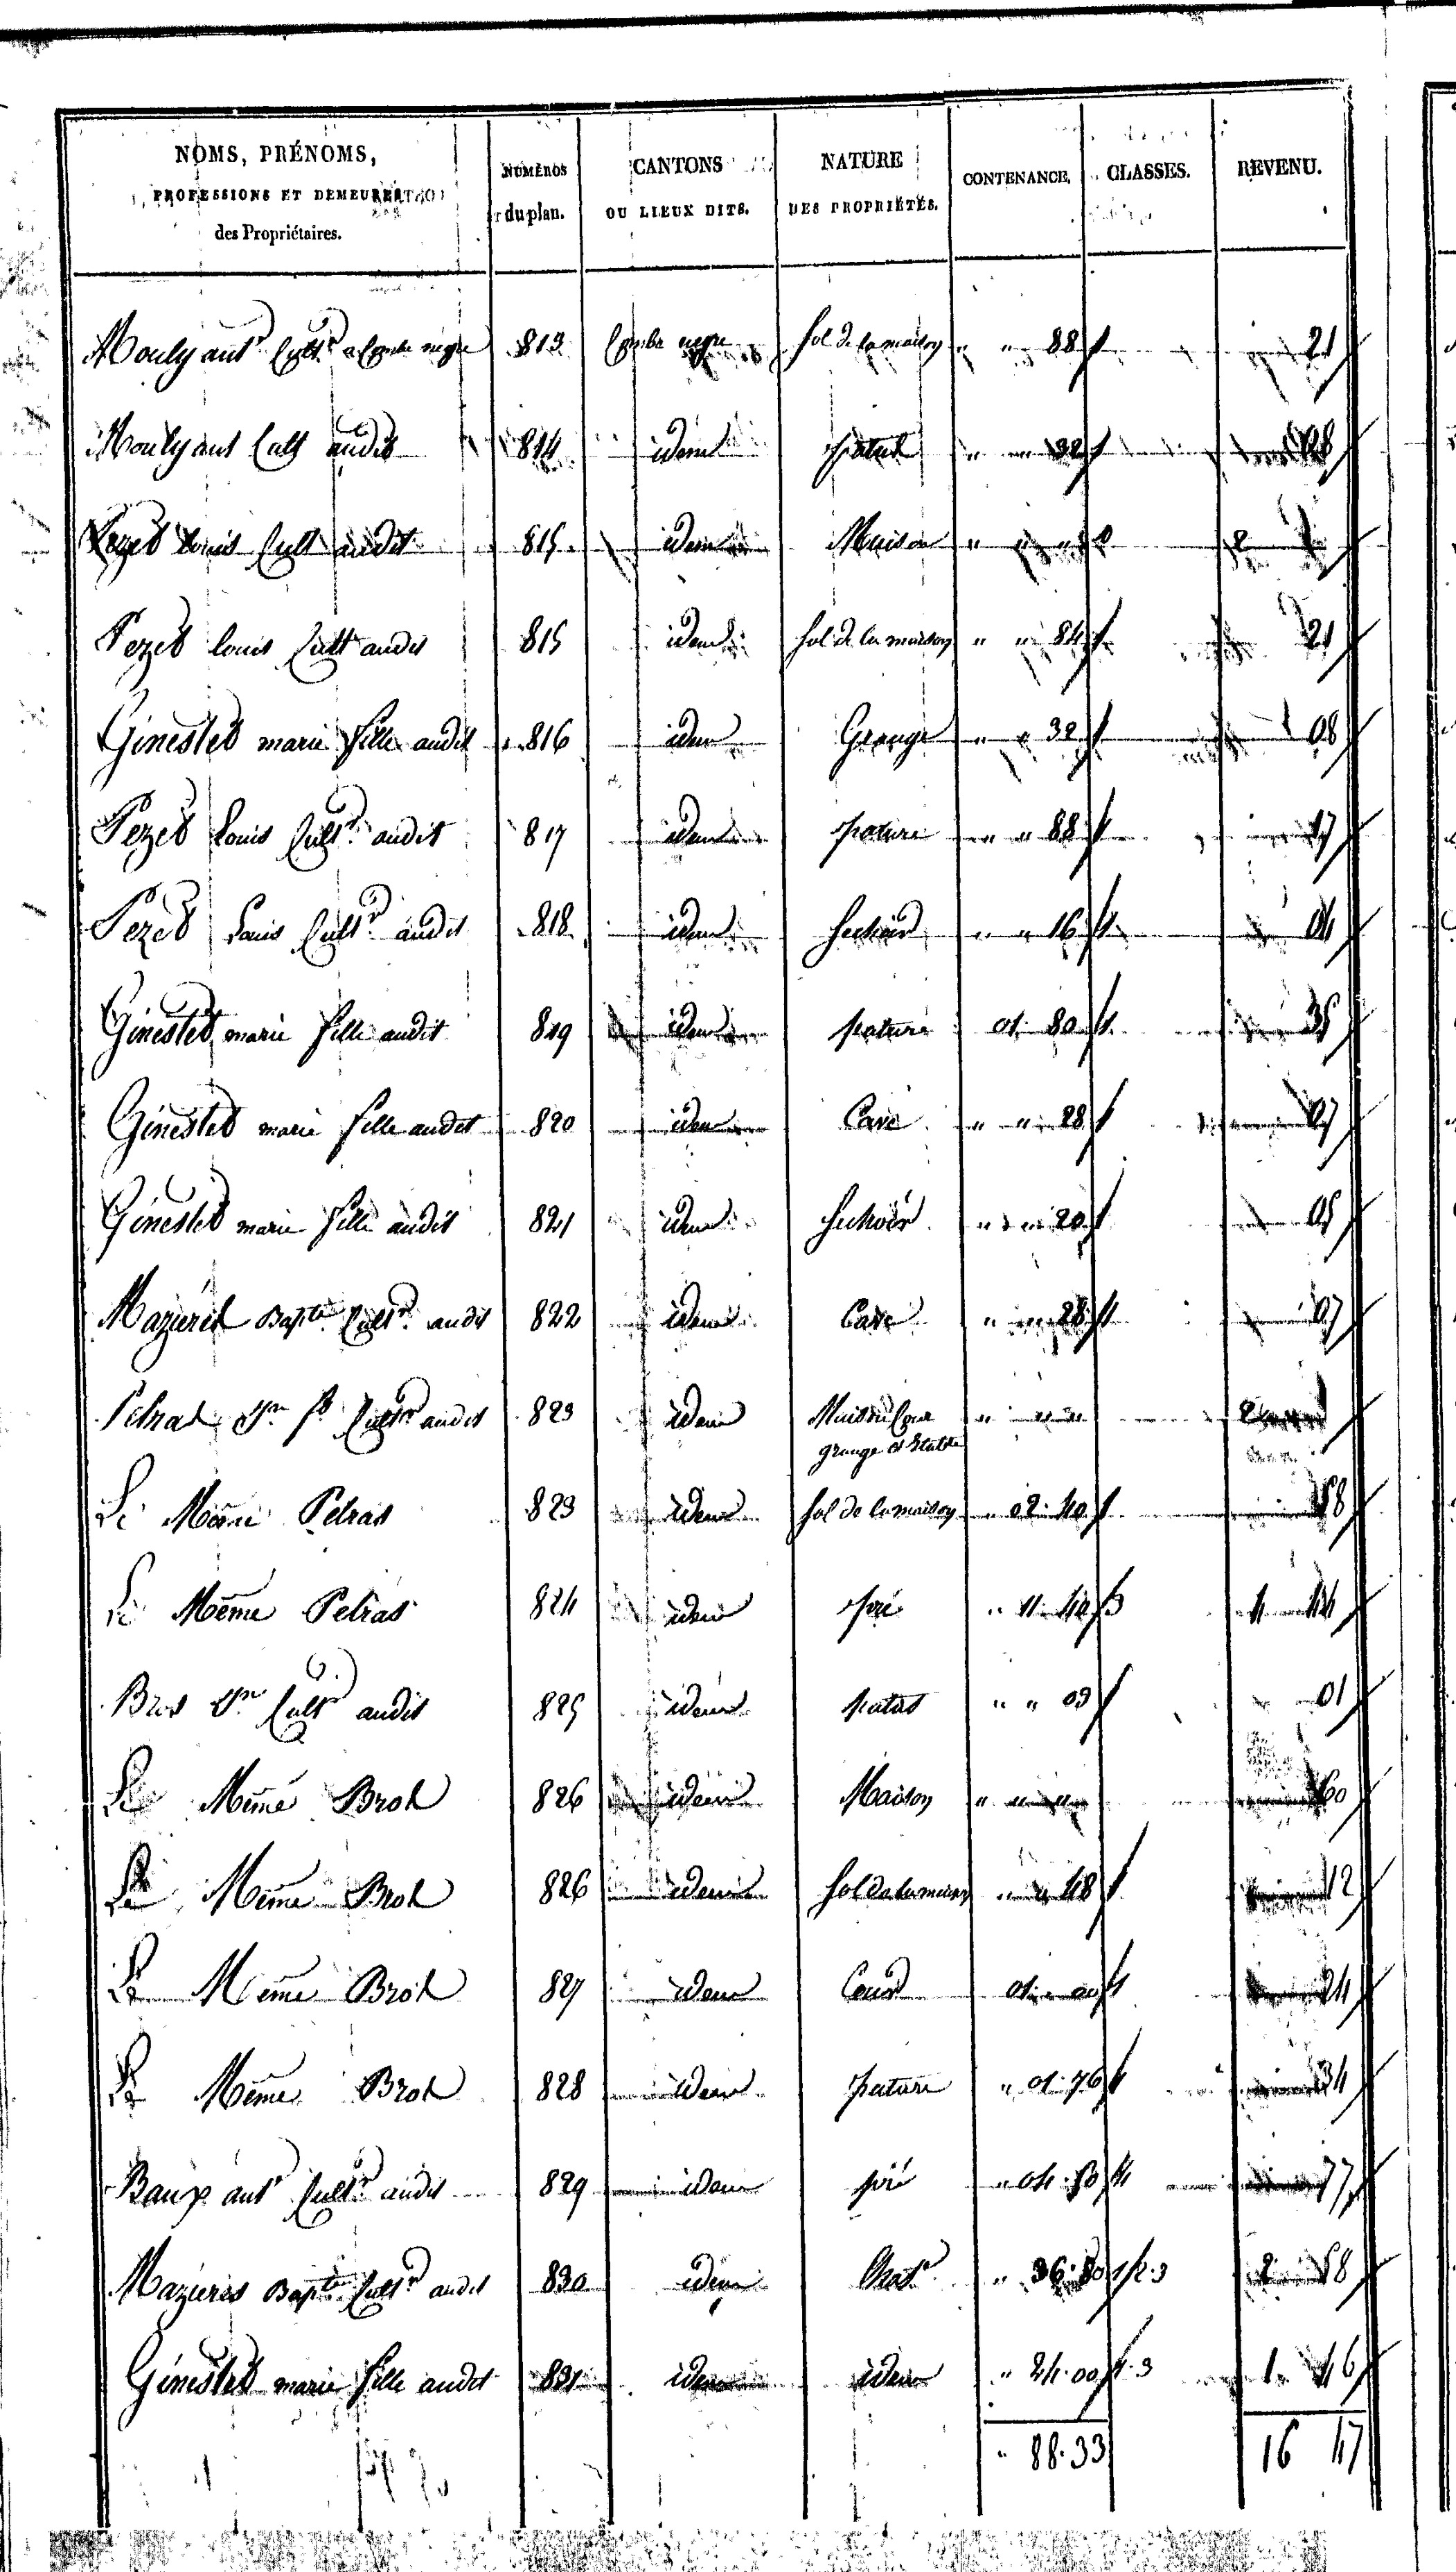 NOMS, PRÉNOMS, PROFESSIONS ET DEMEURES des Propriétaires. NUMÉROS du plan. CANTONS OU LIEUX DITS. NATURE DES PROPRIÉTÉS. CONTENANCE. CLASSES. REVENU.
Mouly ant Cultr a Combe negre 813 Combe negre Sol de la maison " " 88 1 21
Mouly ant Cult audit 814 idem patus " " 32 1
Pezet Louis Cult audit 815 idem Maison " " " 2
Pezet Louis Cult audit 815 idem Sol de la maison " " 84 1 21
Ginestet marie fille audit 816 idem Grange " " 32 1 08
Pezet Louis Cultr audit 817 idem pature " " 88 1 17
Pezet Louis Cultr audit 818 idem Sechoir " " 16 1 04
Ginestet marie fille audit 819 idem pature 01 80 1 35
Ginestet marie fille audit 820 idem Cave " " 28 1 07
Ginestet marie fille audit 821 idem Sechoir " " 20 1 05
Mazieres Bapte Cultr audit 822 idem Cave " " 28 1 07
Pelras Cultr audit 823 idem Maison Cour " " "
grange et Etable
Le Même Pelras 823 idem Sol de la maison " 02 40 1 58
Le Même Pelras 824 idem pré " 11 40 3 1 44
Bros Cultr audit 825 idem patus " " 09 1 01
Le Même Bros 826 idem Maison " " " 60
Le Même Bros 826 idem Sol de la maison " " 48 1 12
Le Même Bros 827 idem Cour 01 00 1 24
Le Même Bros 828 idem pature " 01 76 1 34
Baux ant Cultr audit 829 idem pré " 04 80 77
Mazieres Bapte Cultr audit 830 idem Chatr " 36 80 1.2.3 2 58
Ginestet marie fille audit 831 idem idem " 24.00 1.3 1 46
" 88.33 16 47